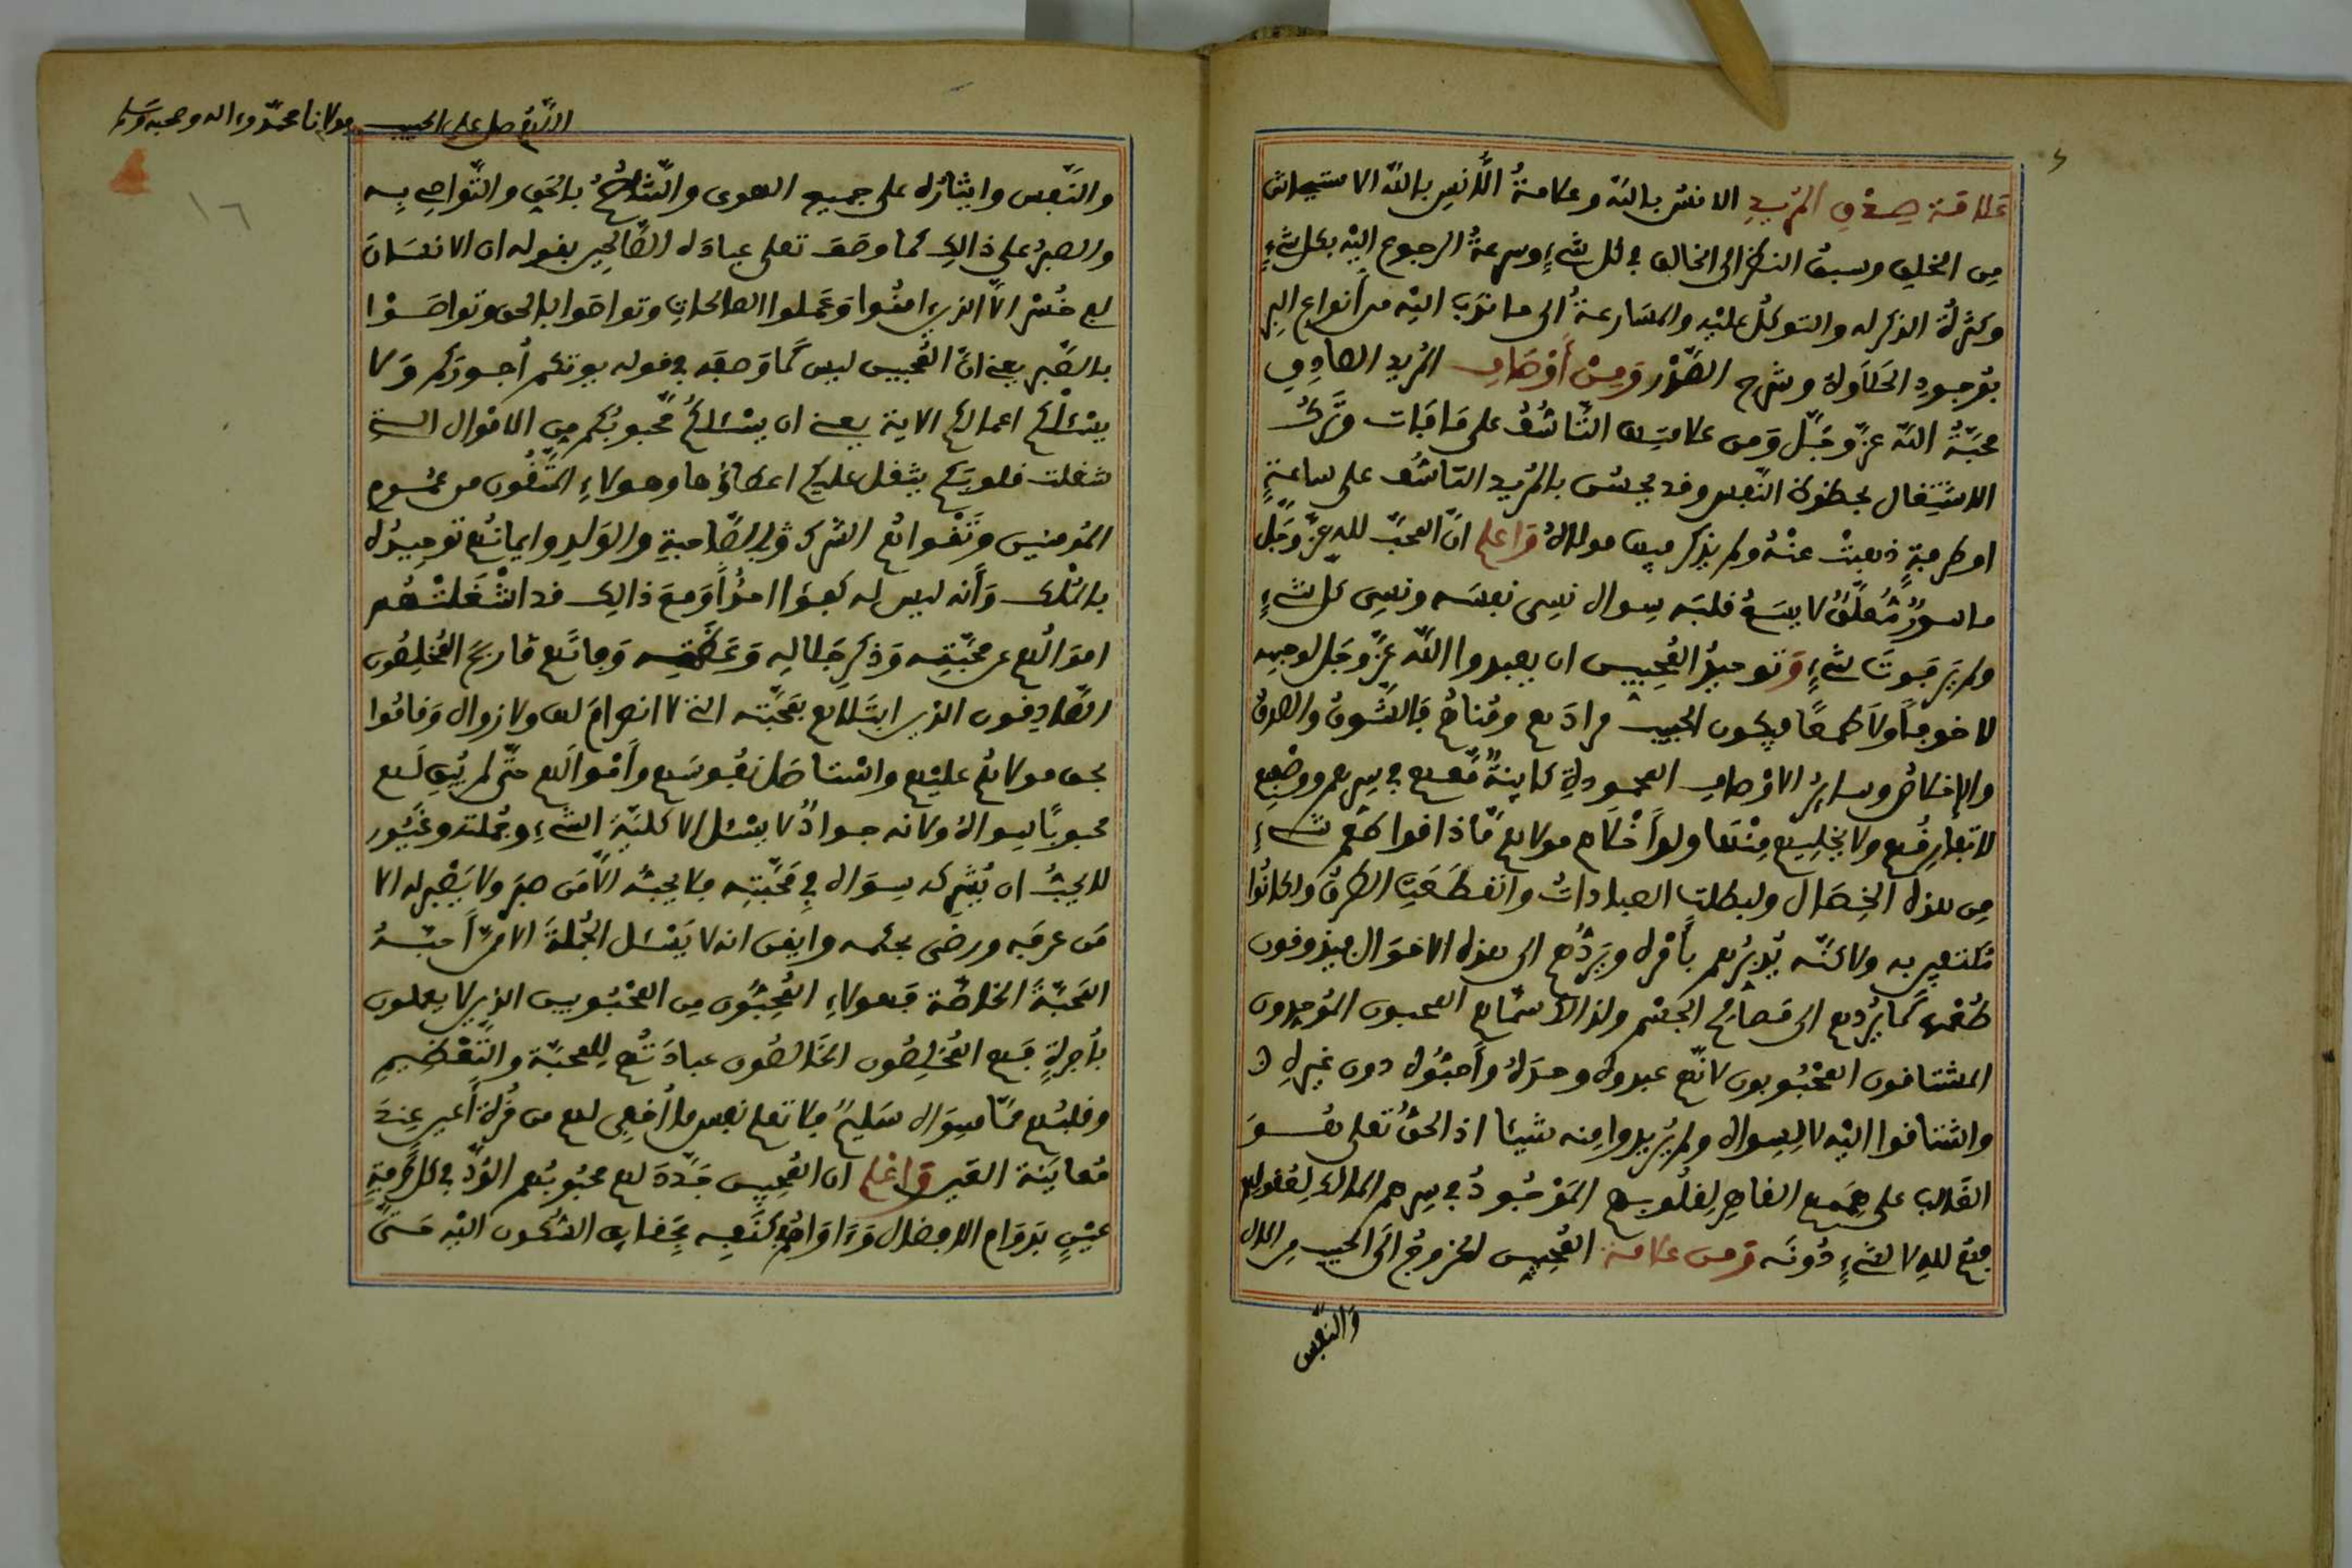 علامة صدق المريد الانس بالله وعلامةُ الأنس بالله الاستيحاش
من الخلق وسبق النظر الى الخالق في كل شيءٍ وسرعةُ الرجوع اليْه بكل شيءٍ
وكثرةُ الذكر له والتوكلُ عليْه والمسَارعةُ الى ما ندَب اليْه من أنواع البر
بوجودِ الحلاوة وشرح الصَّدْر وَمِنْ أوْصَافِ المُريد الصادِق
محبّةُ الله عزّ وجَلّ وَمن علامتها التّأسُّفُ على مَا فات وتَركُ
الاشتِغال بحظوظ النّفس وقد يحسُن بالمُريد التاسُّف على ساعةٍ
او طرفةٍ ذهبتْ عنْهُ ولم يذكر فيها مولاهُ وَاعلم انّ المحبّ لله عزّ وجَلّ
ماسورٌ مُعلَّقٌ لا يسَعُ قلبَه سواه نسِى نفسَه ونسِى كل شيءٍ
ولم يرَ فوتَ شيءٍ وَتوحيدُ المُحِبِّين ان يعبدوا اللّه عزّ وجَل لوجهه
لا خوفاً ولا طمعًا فيكون الحبيب مرادَهم ومُناهُم فالشّوقُ والصدقُ
والإخلاصُ وسايِرُ الاوْصافِ المحمودةِ كاينةٌ مَّعهم في سِرهم ووضْعِهم
لا تفارِقُهم ولا يخلِيهم مِنْها ولولا أحْكام مولاهم مَّا ذاقوا طعْم شيءٍ
مِن هذه الخِصَال ولبطلت العبادات وانقطَعَتِ الطرقُ ولكانُوا
مُكتفين به ولاكنّه يُدبّرُهم بأمْره ويَردُّهم الى هذه الاحْوَال فيذوقون
طعْمها كمَا يَرُدُّهم الى مَصالح الجسْم ولذالك سمّاهم المحبون المُوحدون
المشتاقون المحْبُوبون لانّهم عبدوه وحدَهُ وأحبّوْه دون غيرهِ
واشتاقوا اليْه لا لِسِواه ولم يُريدوا مِنه شيئا اذ الحقُّ تعلى هُوَ
الغَالب على هِمَمهم القاهِر لِقلُوبهم المَوْجُودُ في سِرهم المالك لِعُقولهم
فهم لله لا لشيءٍ دُونَه وَمن علامة المُحِبِّين الخروجُ الَى الحبيب مِن المال
وَالنّفس
اللهم صل على الحبيب مولانا محمّد وءاله وصحبه وسلم
١٦
والنّفس وايثارُه على جميع الهوى والتَّناصُحُ بالحَقِّ والتّواصِي بِه
والصبرُ على ذالِك كما وصَفَ تعلى عبادَه الصَّالِحِين بقوله ان الانسَانَ
لفي خُسْر الا الذين امنُوا وَعَملوا الصالحاتِ وتواصَوا بالحق وتواصَوْا
بالصَّبر يعني انّ المُحبين ليس كمَا وَصفَه في قوله يوتكم أُجورَكم وَلا
يسْئلْكُم اموالكم الاية يعني ان يسْئلكُم مَّحبوبُكم مِن الامْوال التي
شغلت قلوبَكم يثقل عليكم اعطاؤها وهولاءِ المتَّقُون من عمُوم
المُومنِين وَتَقْواهُم الشرك والصَّاحبةِ والوَلدِ وايمانُهم توحيدُه
بالمُلْك وَأنه ليس له كفؤا احَدٌ وَمعَ ذالِك قد اشْغَلتْهُم
اموَالُهم عن محَبّتِه وَذكرِ جَلالِه وَعظمتِه وَفاتَهم مَّا رَبحَ المُخلِصُون
الصّادقون الذين ابتَلاهم بمَحَبّته التي لا انصرامَ لها ولا زوال وَقامُوا
بحق مولاهُم عليْهم واسْتأصَل نفوسَهم وأمْوالَهم حتّى لم يُبْقِ لَهم
محبوبًا سِواهُ ولانه جوادٌ لا يسْئل الا كلّيّة الشيءِ وجُملته وغيُّور
لا يحبُّ ان يُشْرَكه سِوَاه في مَحَبّتِه فلا يحبّه الاّ مَن صبَر ولا يَصْبر له الا
مَن عرفَه ورضى بحكمه وايقن انه لا يَسْئل الجُملةَ الا مَنْ أحبّهُ
المَحبّةَ الخالصَة فهولاءِ المُحِبُّون مِن المحْبُوبين الذين لا يعملون
بأُجرةٍ فهم المُخلِصُون الخَالصُون عبادَتُهم لِلمحبّة والتّعْظيمِ
وقلبُهم مّا سِوَاه سَليمٌ فلا تعلم نفس ما أُخفِى لهم من قُرّة أعين عِندَ
مُعايَنة العَين وَاعْلم ان المُحِبِّين جَدَّدَ لهم محبُوبُهم الوُدَّ في كل طرفةِ
عيْنٍ بدَوَام الافضال وَءَاوَاهُم لكنَفِه بحَقائِق السّكون اليْه حَتىَّ